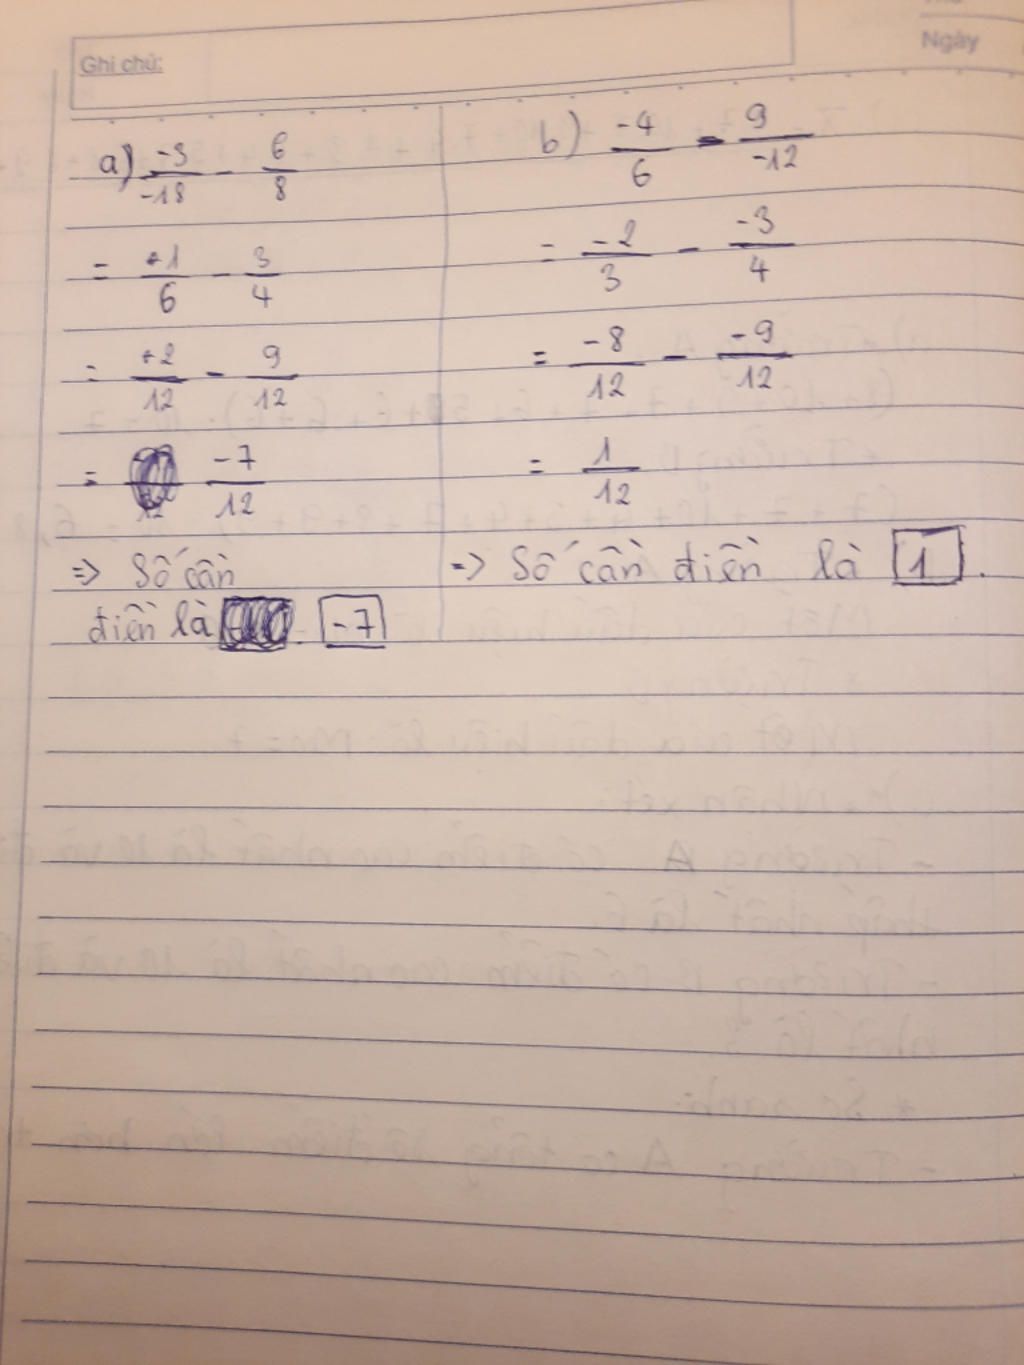 Ghi chú:
Ngày
a) -3/-18 - 6/8
= +1/6 - 3/4
= +2/12 - 9/12
= -7/12
=> Số cần
điền là -7
b) -4/6 - 9/-12
= -2/3 - -3/4
= -8/12 - -9/12
= 1/12
=> Số cần điền là 1.